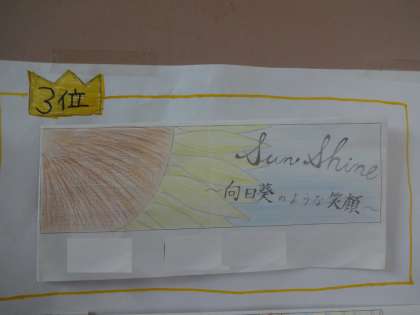 3位
Sun Shine
～向日葵のような笑顔～